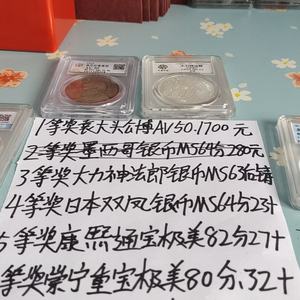 1等奖袁大头公博AV50.1700元
2等奖墨西哥银币MS64分280元
3等奖大力神法郎银币MS63后铸
4等奖日本双凤银币MS64分23+
5等奖康熙通宝极美82分27+
等奖崇宁重宝极美80分.32+